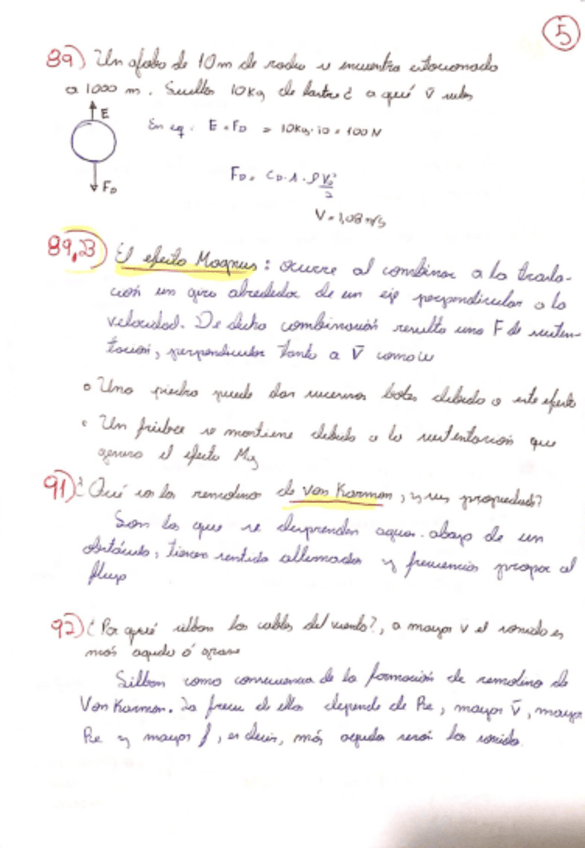 5
89) Un globo de 10m de radio se encuentra estacionado
a 1000 m. Suelta 10kg de lastre ¿ a qué v̄ sube
E
En eq. E = FD = 10kg·10 = 100 N
FD
FD = CD·A·ρ V0²/2
V = 1,08 m/s
89,B) El efecto Magnus: ocurre al combinar a la trasla-
ción un giro alrededor de un eje perpendicular a la
velocidad. De dicha combinación resulta una F de susten-
tación, perpendicular tanto a V̄ como w
o Una piedra puede dar sucesivos botes debido a este efecto
o Un frisbee se mantiene debido a la sustentación que
genera el efecto Mg
91) ¿Qué son los remolinos de Von Karman, y sus propiedades?
Son los que se desprenden aguas abajo de un
obstáculo, tienen sentido alternados y frecuencia propia al
flujo
92) ¿Por qué silban los cables del viento?, a mayor v el sonido es
más agudo ó grave
Silban como consecuencia de la formación de remolino de
Von Karman. La frecu de ellos depende de Re, mayor v̄, mayor
Re y mayor f, es decir, más agudo será los sonido.